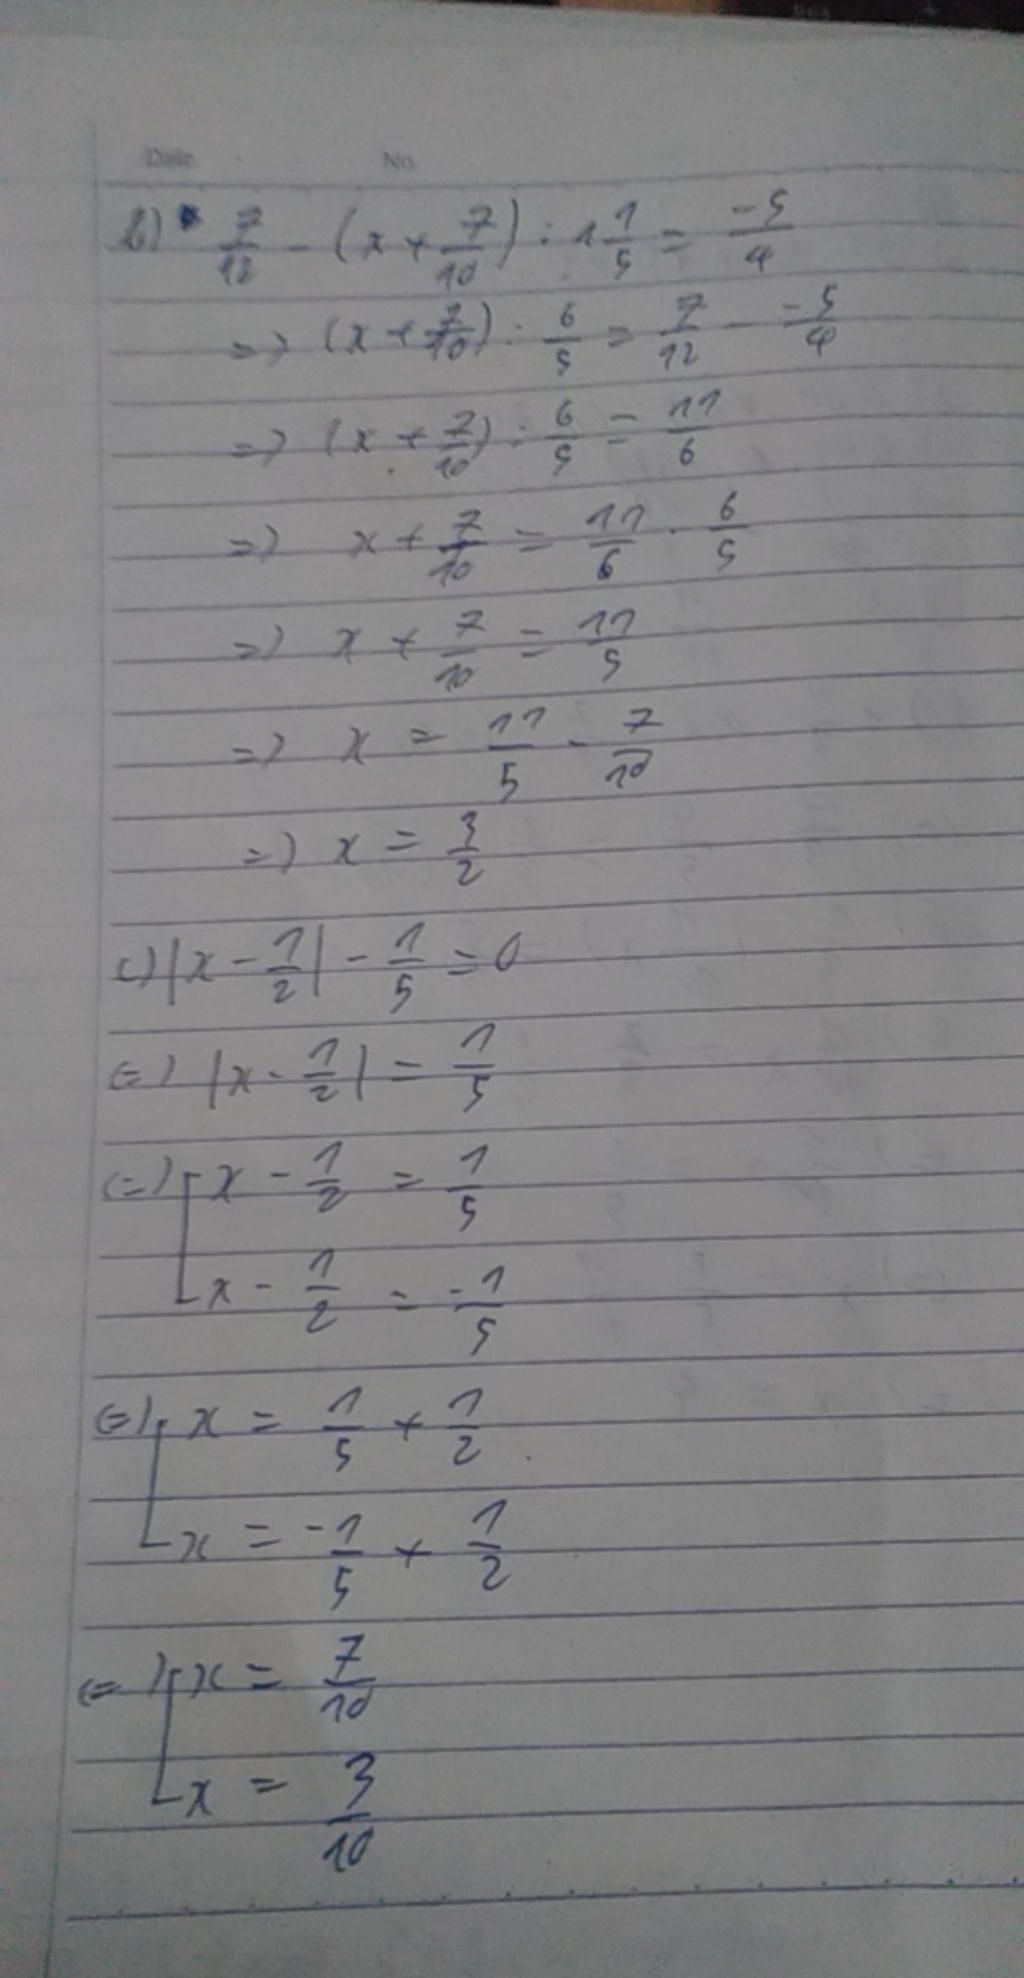 Date No.
b) 7/12 - (x + 7/10) : 1 1/5 = -5/4
=> (x + 7/10) : 6/5 = 7/12 - -5/4
=> (x + 7/10) : 6/5 = 11/6
=> x + 7/10 = 11/6 . 6/5
=> x + 7/10 = 11/5
=> x = 11/5 - 7/10
=> x = 3/2
c) |x - 1/2| - 1/5 = 0
(=) |x - 1/2| = 1/5
(=) [ x - 1/2 = 1/5
x - 1/2 = -1/5
(=) [ x = 1/5 + 1/2
x = -1/5 + 1/2
(=) [ x = 7/10
x = 3/10